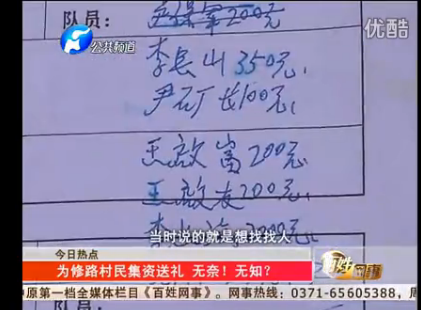 队员：
200元
优酷
公共频道
李长山350元
尹石厂长100元
王啟富200元
王啟友200元
当时说的就是想找找人
今日热点
为修路村民集资送礼 无奈！无知？
百姓网事
中原第一档全媒体栏目《百姓网事》。网事热线：0371-65605388，